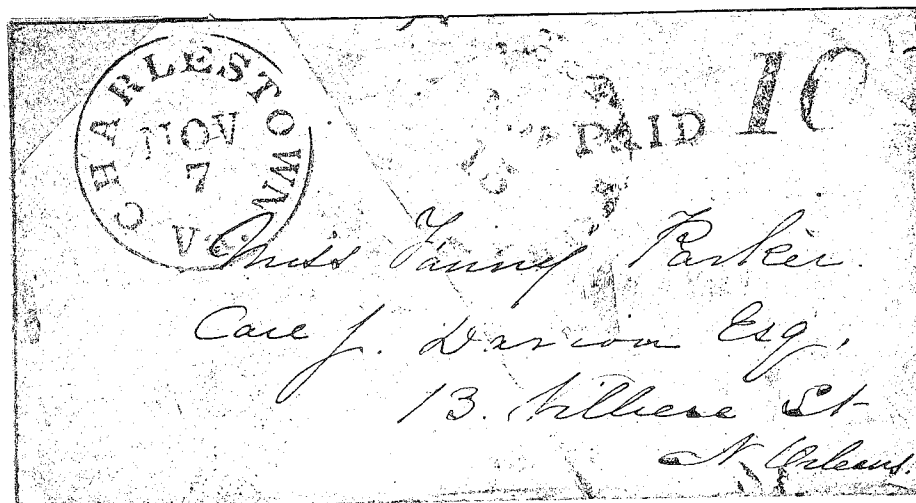 CHARLESTOWN
NOV
7
Va.
15
PAID 10
Miss Fanny Parker.
Care J. Esq,
13. Villere St
N Orleans.